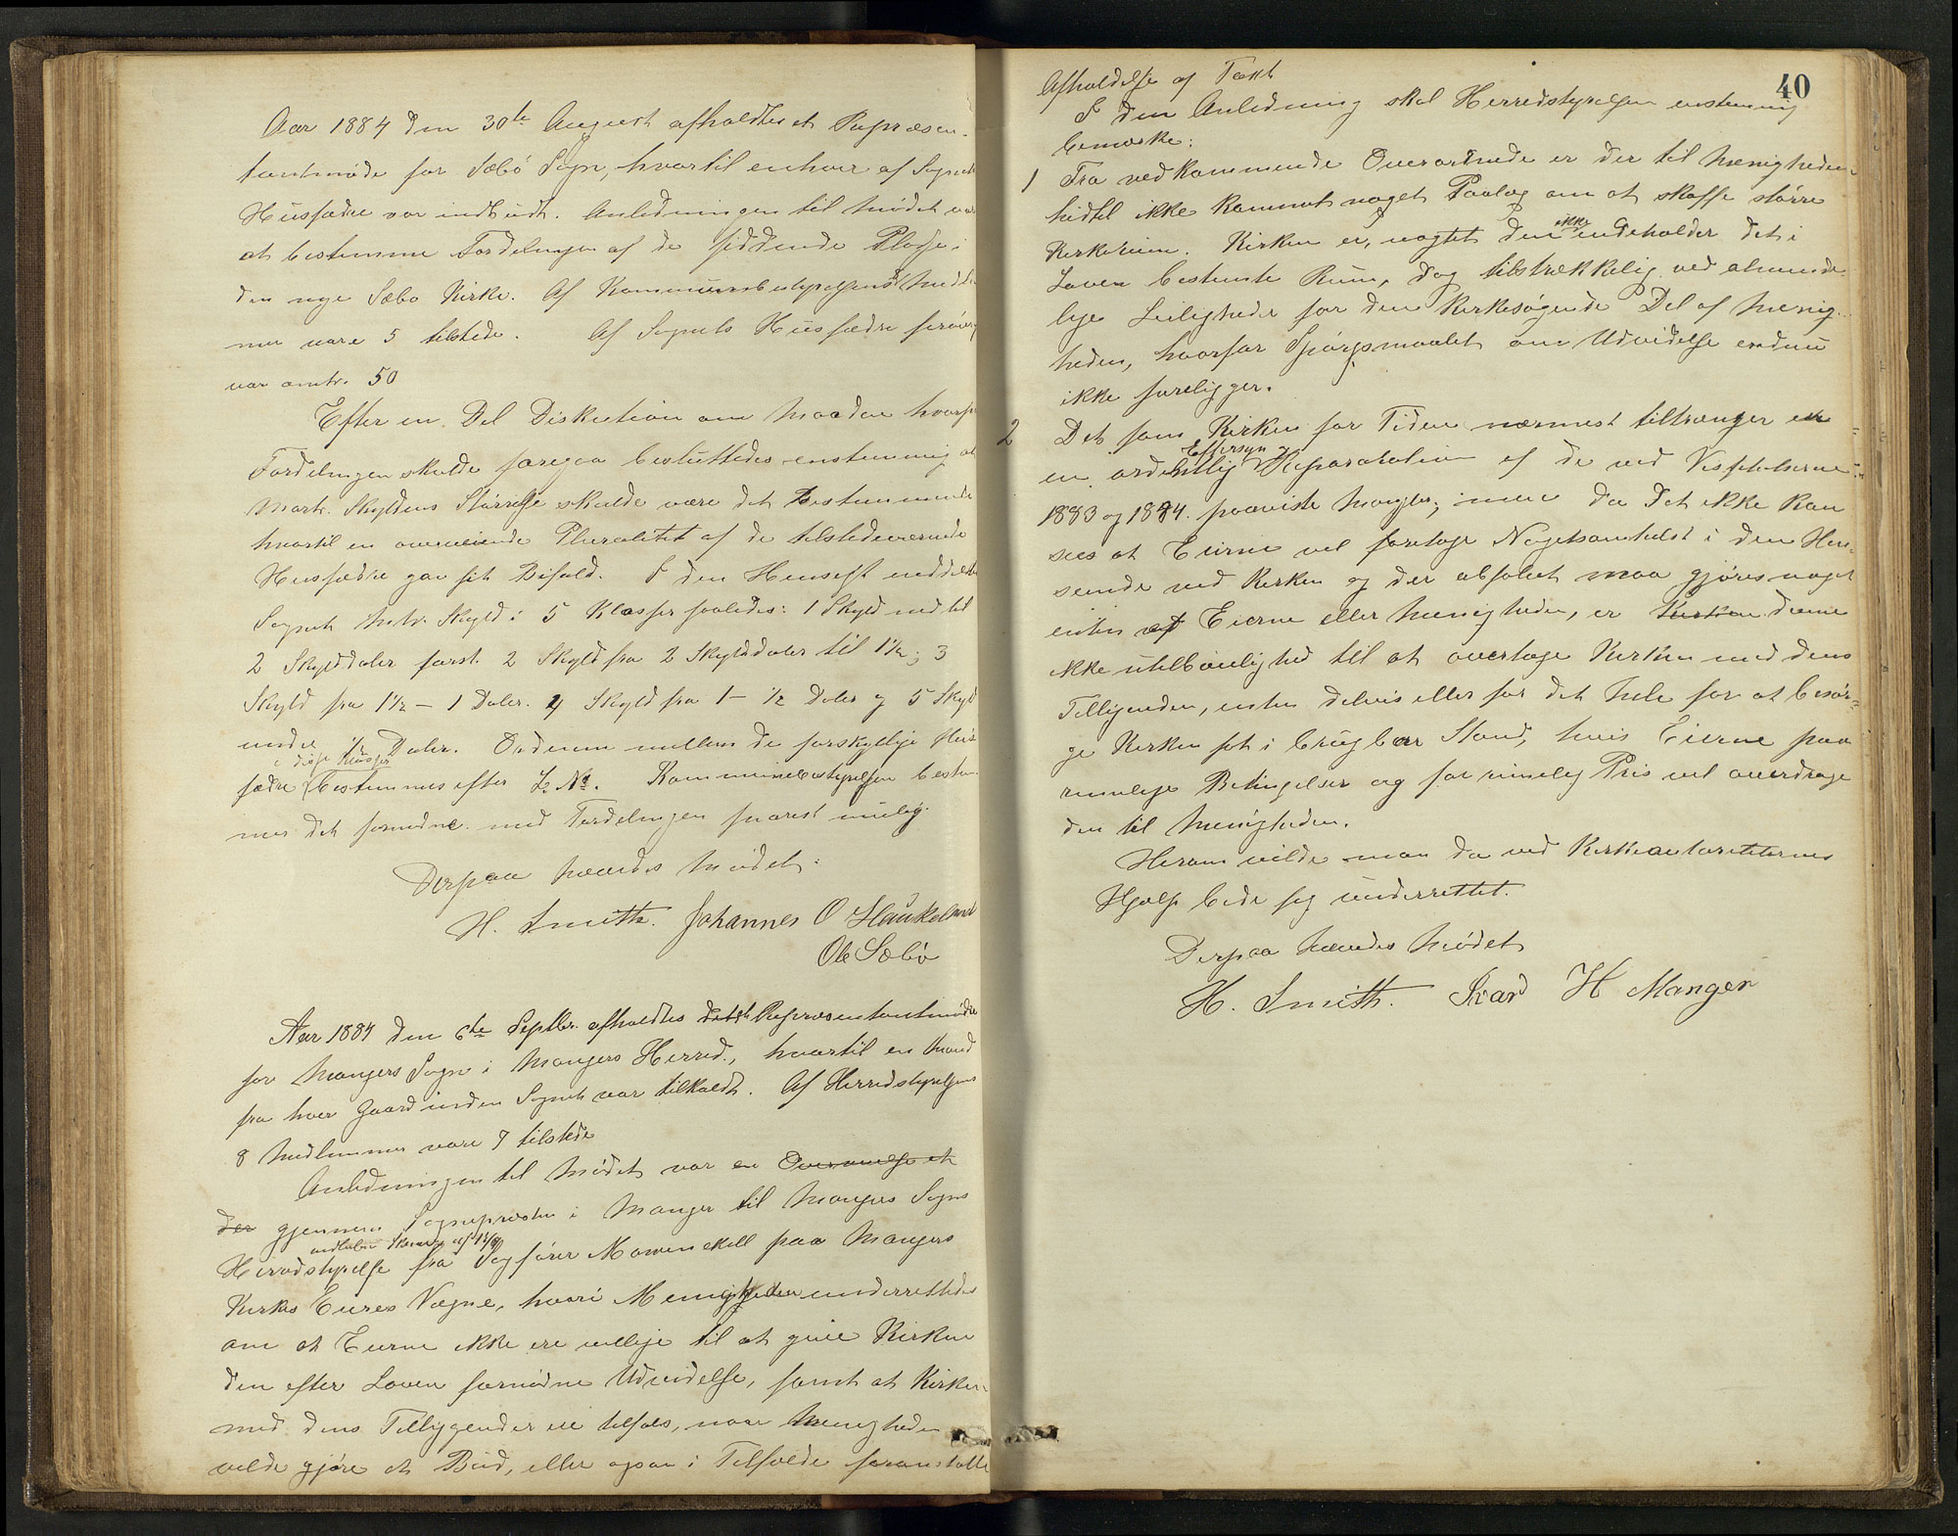 Aar 1884 den 30te August afholdtes et Repræsen-
tantmøde for Sæbø Sogn, hvortil enhver af Sognets
Husfædre var indbudt. Anledningen til Mødet var
at bestemme Fordelingen af de siddende Pladse i
den nye Sæbø Kirke. Af Kommunebestyrelsens 8 Medlem-
mer vare 5 tilstede. Af Sognets Husfædre forøvrig
var omtr. 50
Efter en Del Diskution om Maaden hvorpaa
Fordelingen skulde foregaa besluttedes enstemmig at
Matr. Skyldens Størrelse skulde være det bestemmende
hvortil en overveiende Pluralitet af de tilstedeværende
Husfædre gav sit Bifald. I den Henseft inddeltes
Sognets Matr. Skyld i 5 Klasser saaledes: 1 Skyld ned til
2 Skylddaler først. 2 Skyld fra 2 Skylddaler til 1½; 3
Skyld fra 1½ - 1 Daler. 4 Skyld fra 1 - ½ Daler og 5 Skyld
under ½ Daler. Ordenen mellem de forskjellige Hus-
i disse Klasser
fædre bestemmes efter L. No. Kommunebestyrelsen bestem-
mer det fornødne med Fordelingen snarest mulig.
Derpaa hævedes Mødet.
H. Smith. Johannes O Haukeland
Ole Sæbø
Aar 1884 den 6te Septbr. afholdtes Repræsentantmøde
for Mangers Sogn i Mangers Herred, hvortil en Mand
fra hver Gaard inden Sognet var tilkaldt. Af Herredstyrelsens
8 Medlemmer vare 7 tilstede
Anledningen til Mødet var en Overveielse et
der gjennem Sognepresten i Manger til Mangers Sogns
indløben Skrivelse af
Herredstyrelse fra Sagfører Mowinckell paa Mangers
Kirkes Eieres Vegne, hvori Menigheden underrettedes
om at Eierne ikke ere villige til at give Kirken
den efter Loven fornødne Udvidelse, samt at Kirken
med dens Tilliggender er tilfals, naar Menigheden
vilde gjøre et Bud, eller ogsaa i Tilfælde foranstalte
40
Afholdelse af Taxt
I den Anledning skal Herredstyrelsen enstemmig
bemærke:
1 Fra vedkommende Overordnede er der til Menigheden
hidtil ikke kommet noget Paalæg om at skaffe større
ikke
Kirkerum. Kirken er, uagtet den indeholder det i
Loven bestemte Rum, dog tilstrækkelig ved alminde-
lige Leiligheder for den kirkesøgende Del af Menig-
heden, hvorfor Spørgsmaalet om Udvidelse endnu
ikke foreligger.
2 Det som Kirken for Tiden nærmest tiltrænger er
Eftersyn og
en ordentlig Reparation af de ved Visitatserne
1883 og 1884 paaviste Mangler; men da det ikke kan
sees at Eierne vil foretage Nogetsomhelst i den Hen-
seende ved Kirken og der absolut maa gjøres noget
enten af Eierne eller Menigheden, er Kirken denne
ikke utilbøielighed til at overtage Kirken med dens
Tilliggender, enten delvis eller for det Hele for at besør-
ge Kirken sat i brugbar Stand, hvis Eierne paa
rimelige Betingelser og for rimelig Pris vil overdrage
den til Menigheden.
Herom vilde man da ved Kirkeautoriteternes
Hjælp bede sig underrettet.
Derpaa hævedes Mødet
H. Smith. Ivar H Manger